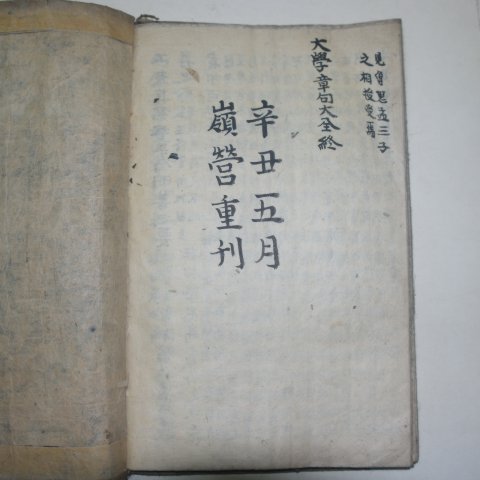 見曾思孟三子
之相授受焉
大學章句大全終
辛丑五月
嶺營重刊